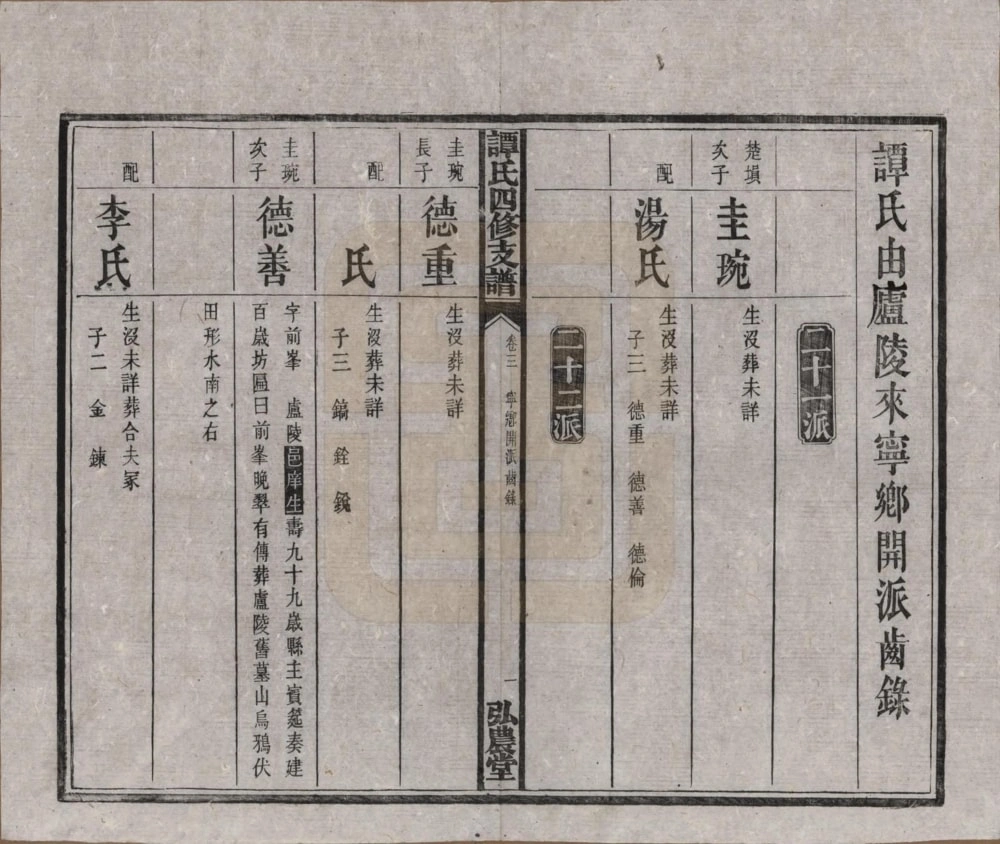 譚氏由廬陵來寧鄉開派齒錄
二十一派
楚塤
次子
圭琬
生沒葬未詳
配
湯氏
生沒葬未詳
子三 德重 德善 德倫
二十二派
譚氏四修支譜
卷三 寧鄉開派齒錄
一
弘農堂
圭琬
長子
德重
生沒葬未詳
配
氏
生沒葬未詳
子三 鎬 銓 銳
圭琬
次子
德善
字前峯 盧陵邑庠生壽九十九歲縣主賓筵奏建
百歲坊區曰前峯晚翠有傳葬盧陵舊墓山烏鴉伏
田形水南之右
配
李氏
生沒未詳葬合夫冢
子二 金 鍊